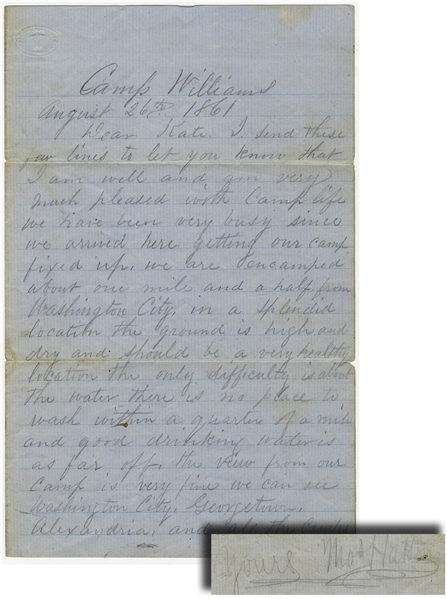 Camp Williams
August 26th 1861
Dear Kate. I send these
few lines to let you know that
I am well and am very
much pleased with Camp life
we have been very busy since
we arrived here getting our camp
fixed up, we are encamped
about one mile and a half from
Washington City, in a splendid
location the ground is high and
dry and should be a very healthy
location the only difficulty is about
the water there is no place to
wash within a quarter of a mile
and good drinking water is
as far off, the view from our
Camp is very fine we can see
Washington City, Georgetown,
Alexandria, and
Yours